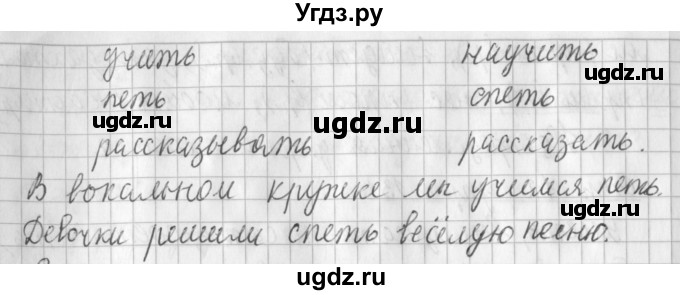 Угдз.ру
учить научить
ugdz.ru
петь спеть
ugdz.ru ugdz.ru
ugdz.ru
рассказывать рассказать.
В вокальном кружке мы учимся петь.
ugdz.ru
Девочки решили спеть весёлую песню.
ugdz.ru